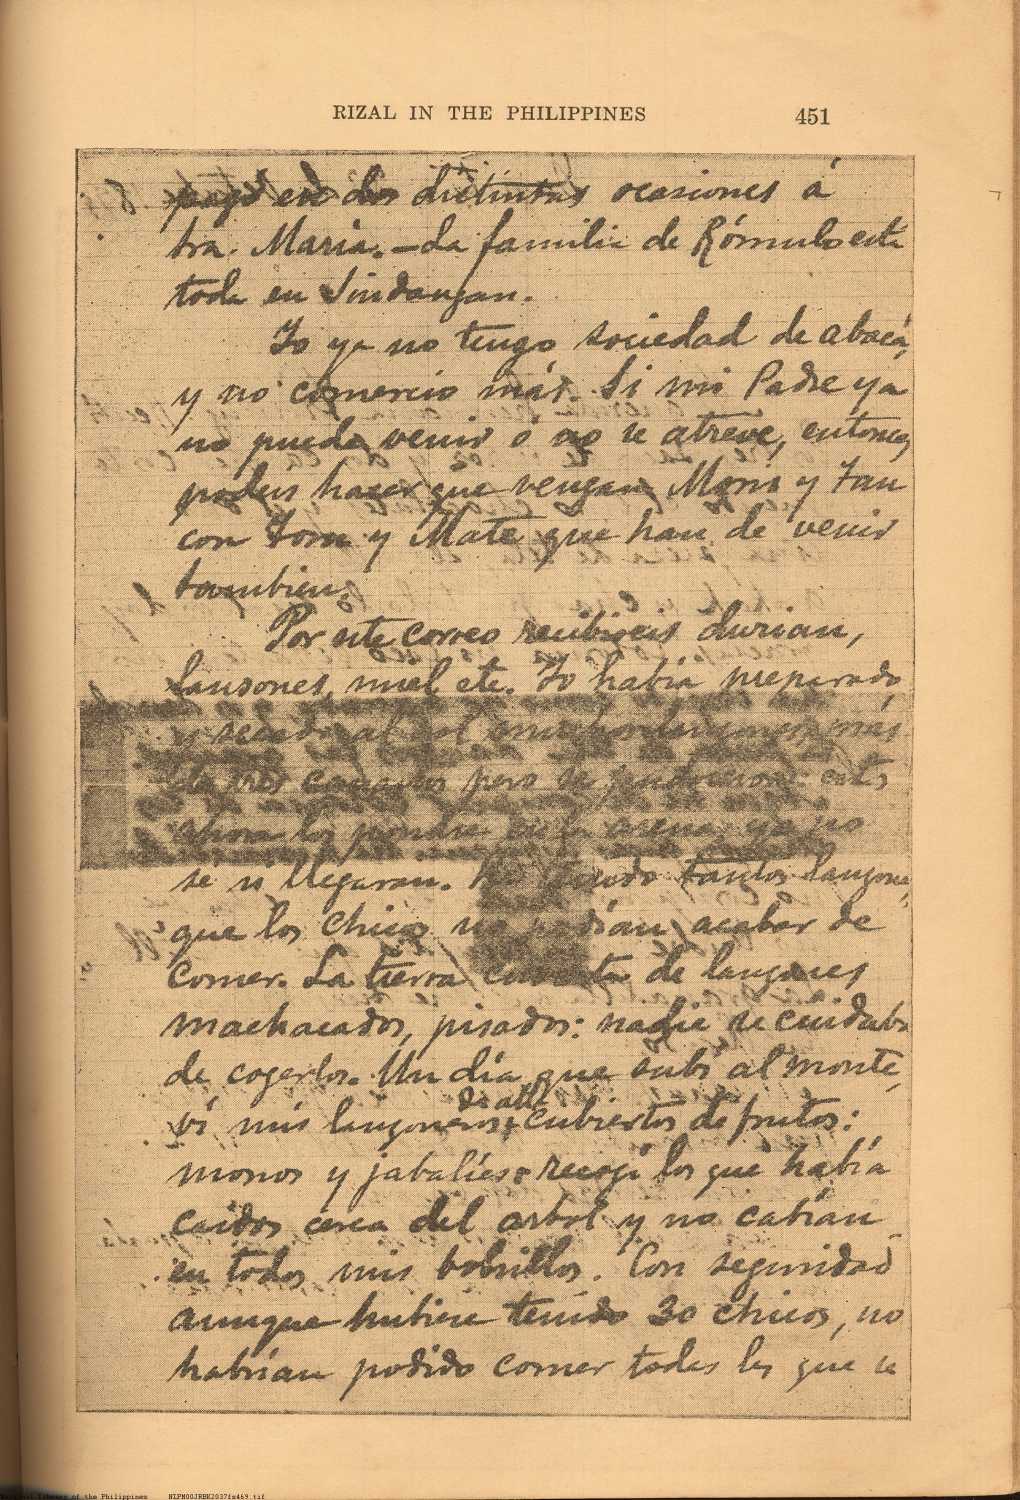 RIZAL IN THE PHILIPPINES 451
pagó en dos distintas ocasiones á
tra. Maria. — La familia de Rómulo está
toda en Sindangan.
Yo ya no tengo sociedad de abacá,
y no comercio más. Si mi Padre ya
no puede venir ó no se atreve, entonces
podeis hacer que vengan Moris y Tan
con Tom y Mate que han de venir
tambien.
Por este correo recibireis durian,
lansones, miel etc. Yo habia preparado
y secado al sol muchos lanzones, más
de tres cavanes pero se pudrieron: estos
ahora los pondré en la arena ya no
se si llegaran. Ha habido tantos lanzones,
que los chicos no podían acabar de
comer. La tierra cubierta de lanzones
machacados, pisados: nadie se cuidaba
de cogerlos. Un día que subí al monte,
de allí
ví mis lanzoneros cubiertos de frutos:
monos y jabalíes: recogí los que había
caidos cerca del arbol y no cabían
en todos mis bolsillos. Con seguridad
aunque hubiera tenido 30 chicos, no
habrían podido comer todas las que se
National Library of the Philippines NLPM00JRBK2037fs469.tif